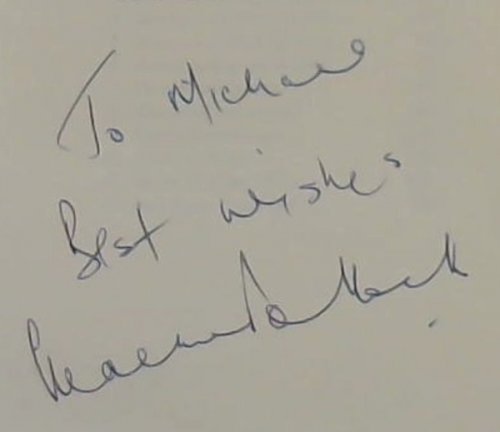 To Michael
Best wishes
Pollock